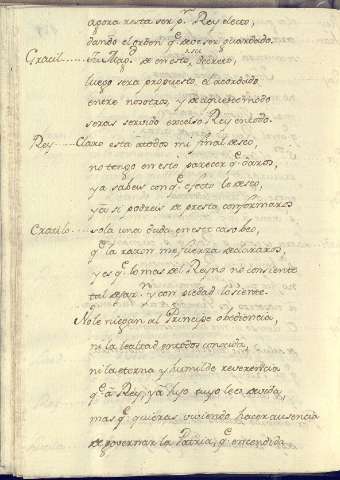 agora resta ser pr. Rey electo,
dando el orden q. a de ser guardado.
Cratil...... Tu Mag. de en esto, decreto,
luego sera propuesto, el acordado
entre nosotros, y de aqueste modo
seras servido excelso Rey en todo.
Rey ........ Claro esta a todos mi final deseo,
no tengo en esto parecer q. daros,
ya sabeis con q. efecto lo deseo,
y a si podreis de presto conformaros
Cratilo ..... sola una duda en este caso veo,
q. la razon me fuerza declararos,
y es q. lo mas del Reyno no consiente
tal y con piedad lo siente.
No le niegan al Principe obediencia,
ni la lealtad en todos conocida,
ni la eterna y humilde reverencia
q. a Rey, y a hijo tuyo le es devida,
mas q. quieras viviendo hacer ausencia
de governar la Patria, q. encendida